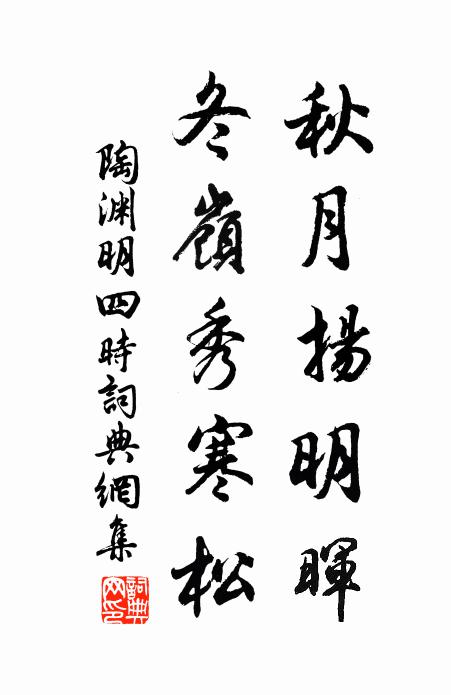 秋月揚明暉
冬嶺秀寒松
陶渊明四時詞典網集
詞典网印